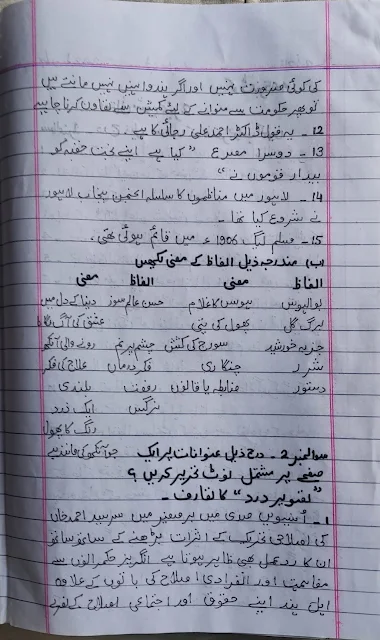 کی کوئی ضرورت نہیں اور اگر ہندو انہیں نہیں مانتے ہیں
تو پھر حکومت سے منوانے کے لئے کمیشن سے تعاون کرنا چاہیے
12 - یہ قول ڈاکٹر احمد علی رجائی کا ہے
13 - دوسرا مصرع "کیا ہے اپنے بخت خفتہ کو
بیدار قوموں نے"
14 - لاہور میں مناظموں کا سلسلہ انجمن پنجاب لاہور
نے شروع کیا تھا -
15 - مسلم لیگ 1906ء میں قائم ہوئی تھی -
(ب) مندرجہ ذیل الفاظ کے معنی لکھیں
الفاظ معنی الفاظ معنی
بوالہوس ہوس کا غلام حسن عالم سوز دنیا کے دل میں
برگ گل پھول کی پتی عشق کی آگ لگانا
جذبہ خورشید سورج کی کشش چشم پرنم رونے والی آنکھ
شرر چنگاری فکر درماں علاج کی فکر
دستور ضابطہ یا قانون رفعت بلندی
نرگس ایک زرد
رنگ کا پھول
سوال نمبر 2 - درج ذیل عنوانات پر ایک جو آنکھ کی مانند ہے
صفحے پر مشتمل نوٹ تحریر کریں ؟
"تصویر درد" کا تعارف -
1 - اُنیسویں صدی میں برصغیر میں سرسید احمد خان
کی اصلاحی تحریک کے اثرات بڑھنے کے ساتھ ساتھ
ان کا رد عمل بھی ظاہر ہوتا ہے انگریز حکمرانوں سے
مفاہمت اور انفرادی اصلاح کی باتوں کے علاوہ
اہل ہند اپنے حقوق اور اجتماعی اصلاح کے لئے